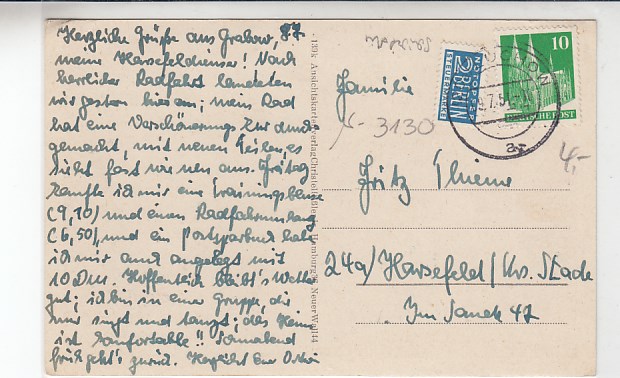 Herzliche Grüße aus Grabow, 8.7.
meine Harsefeldienser! Nach
herrlicher Radfahrt landeten
wir gestern hier an; mein Rad
hat eine Verschönerungskur durch-
gemacht, mit neuen Teilen, es
sieht fast wie neu aus. Freitag
kaufte ich mir eine Trainingsbluse
(9,10) und einen Radfahrumhang
(6,50), und ein Postsparbuch habe
ich mir auch angelegt mit
10 DM. Hoffentlich bleibt's Wetter
gut; ich bin in einer Gruppe, die
nur singt und tanzt; das Heim
ist komfortabel!! Sonnabend
früh geht's zurück. Herzlichst Eure
Ansichtskartenverlag
Hamburg 36, Neuer Wall 44
NOTOPFER
2 BERLIN
STEUERMARKE
10
DEUTSCHE POST
Familie
3130
4,-
Fritz Thieme
24a/Harsefeld/Krs. Stade
Im Sande 47